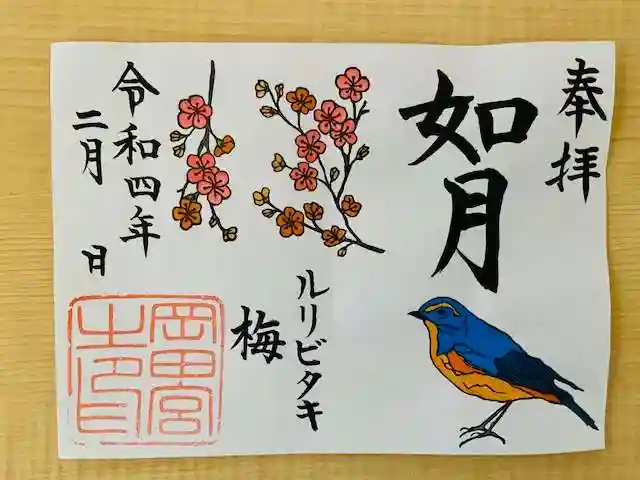 奉拝
如月
ルリビタキ
梅
令和四年
二月 日
岡田宮
之印